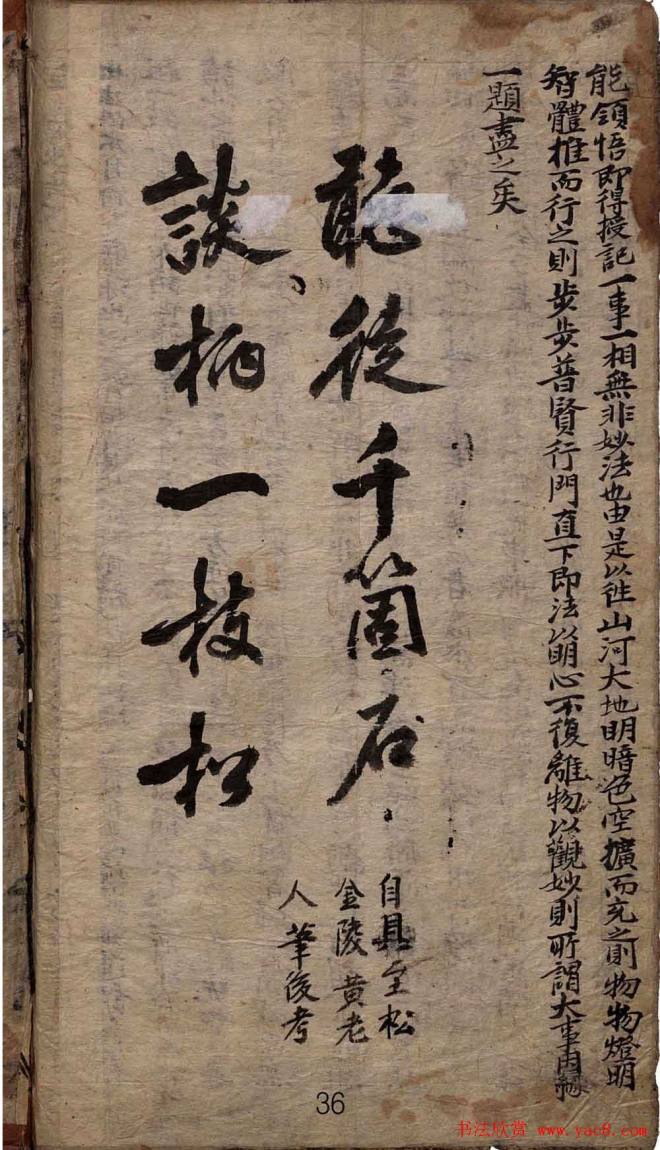 能領悟即得授記一事一相無非妙法也由是以往山河大地明暗色空擴而充之則物物燈明
智體推而行之則步步普賢行門直下即法以明心不復離物以觀妙則所謂大事因緣
一題盡之矣
聽徒千箇石
談柄一枝松
自具至松
金陵黃老
人筆後考
36
书法欣赏 www.yac8.com